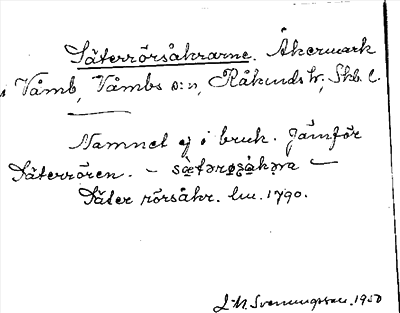 Säterrörsåkrarne. Åkermark
i Våmb, Våmbs s:n, Kåkinds hd, Skb. l.
Namnet ej i bruk. Jämför
Säterrören. –
Säter rörsåkr. lm. 1790.
L M. Svenungsson. 1950